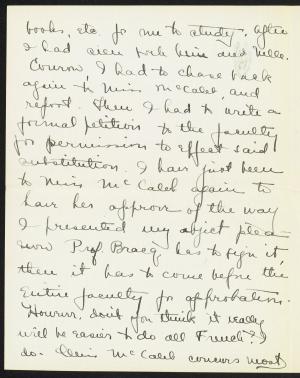 books, etc. for me to study. After
I had seen both him and Mlle.
I had to chase back
again to Miss McCaleb, and
report. Then I had to write a
formal petition to the faculty
for permission to effect said
substitution. I have just been
to Miss McCaleb again to
have her approve of the way
I presented my abject plea—
now Prof. Bracq has to sign it,
then it has to come before the
entire faculty for approbation.
However, don't you think it really
will be easier to do all French? I
do. Miss McCaleb concurs most